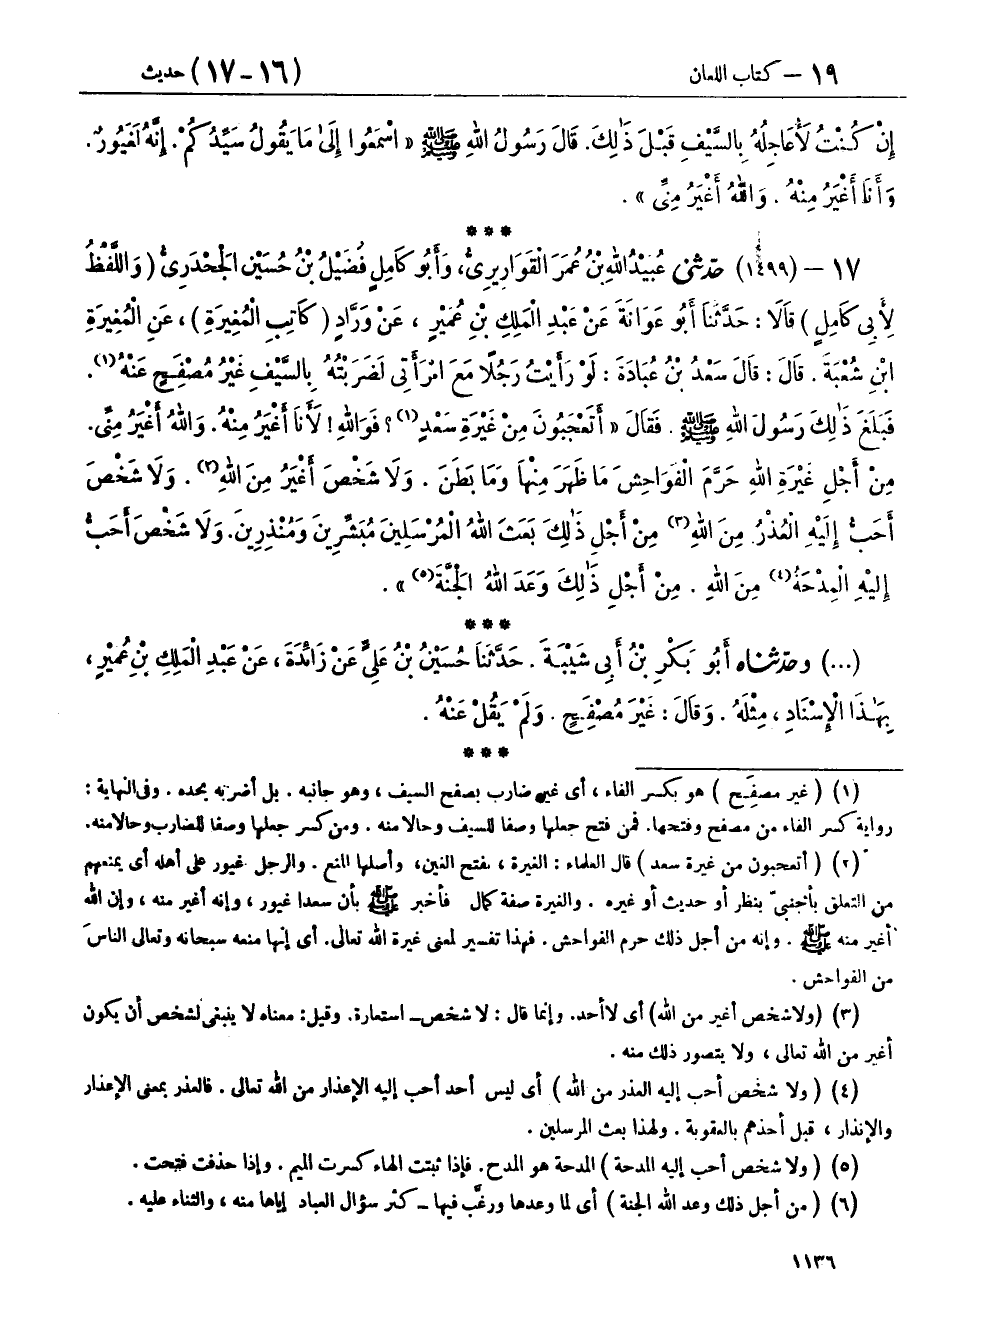 ١٩ – كتاب اللعان (١٦-١٧) حديث
إِنْ كُنْتُ لَأُعَاجِلُهُ بِالسَّيْفِ قَبْلَ ذَٰلِكَ. قَالَ رَسُولُ اللهِ ﷺ « اسْمَعُوا إِلَىٰ مَا يَقُولُ سَيِّدُكُمْ. إِنَّهُ لَغَيُورٌ.
وَأَنَا أَغْيَرُ مِنْهُ . وَاللهُ أَغْيَرُ مِنِّي » .
***
١٧ – (١٤٩٩) حدثني عُبَيْدُ اللهِ بْنُ عُمَرَ الْقَوَارِيرِيُّ، وَأَبُو كَامِلٍ فُضَيْلُ بْنُ حُسَيْنٍ الْجَحْدَرِيُّ (وَاللَّفْظُ
لِأَبِي كَامِلٍ) قَالَا : حَدَّثَنَا أَبُو عَوَانَةَ عَنْ عَبْدِ الْمَلِكِ بْنِ عُمَيْرٍ ، عَنْ وَرَّادٍ (كَاتِبِ الْمُغِيرَةِ) ، عَنِ الْمُغِيرَةِ
ابْنِ شُعْبَةَ . قَالَ : قَالَ سَعْدُ بْنُ عُبَادَةَ : لَوْ رَأَيْتُ رَجُلًا مَعَ امْرَأَتِي لَضَرَبْتُهُ بِالسَّيْفِ غَيْرُ مُصْفِحٍ عَنْهُ(١).
فَبَلَغَ ذَٰلِكَ رَسُولَ اللهِ ﷺ . فَقَالَ « أَتَعْجَبُونَ مِنْ غَيْرَةِ سَعْدٍ(١) ؟ فَوَاللهِ! لَأَنَا أَغْيَرُ مِنْهُ. وَاللهُ أَغْيَرُ مِنِّي.
مِنْ أَجْلِ غَيْرَةِ اللهِ حَرَّمَ الْفَوَاحِشَ مَا ظَهَرَ مِنْهَا وَمَا بَطَنَ . وَلَا شَخْصَ أَغْيَرُ مِنَ اللهِ(٢) . وَلَا شَخْصَ
أَحَبُّ إِلَيْهِ الْعُذْرُ مِنَ اللهِ(٣) مِنْ أَجْلِ ذَٰلِكَ بَعَثَ اللهُ الْمُرْسَلِينَ مُبَشِّرِينَ وَمُنْذِرِينَ. وَلَا شَخْصَ أَحَبُّ
إِلَيْهِ الْمِدْحَةُ(٤) مِنَ اللهِ . مِنْ أَجْلِ ذَٰلِكَ وَعَدَ اللهُ الْجَنَّةَ(٥) » .
***
(...) وحدثناه أَبُو بَكْرِ بْنُ أَبِي شَيْبَةَ . حَدَّثَنَا حُسَيْنُ بْنُ عَلِيٍّ عَنْ زَائِدَةَ ، عَنْ عَبْدِ الْمَلِكِ بْنِ عُمَيْرٍ ،
بِهَٰذَا الْإِسْنَادِ ، مِثْلَهُ . وَقَالَ : غَيْرَ مُصْفِحٍ . وَلَمْ يَقُلْ عَنْهُ .
***
(١) ( غير مصفِح ) هو بكسر الفاء ، أى غير ضارب بصفح السيف ، وهو جانبه . بل أضربه بحده . وفى النهاية :
رواية كسر الفاء من مصفح وفتحها. فمن فتح جعلها وصفا للسيف وحالا منه . ومن كسر جعلها وصفا للضارب وحالا منه.
(٢) ( أتعجبون من غيرة سعد ) قال العلماء : الغيرة ، بفتح الغين، وأصلها المنع . والرجل غيور على أهله أى يمنعهم
من التعلق بأجنبىّ بنظر أو حديث أو غيره . والغيرة صفة كمال فأخبر ﷺ بأن سعدا غيور ، وإنه أغير منه ، وإن الله
أغير منه ﷺ . وإنه من أجل ذلك حرم الفواحش . فهذا تفسير لمعنى غيرة الله تعالى. أى إنها منعه سبحانه وتعالى الناس
من الفواحش .
(٣) (ولا شخص أغير من الله) أى لا أحد. وإنما قال : لا شخص ــ استعارة. وقيل: معناه لا ينبغى لشخص أن يكون
أغير من الله تعالى ، ولا يتصور ذلك منه .
(٤) ( ولا شخص أحب إليه العذر من الله ) أى ليس أحد أحب إليه الإعذار من الله تعالى . فالعذر بمعنى الإعذار
والإنذار ، قبل أخذهم بالعقوبة . ولهذا بعث المرسلين .
(٥) ( ولا شخص أحب إليه المدحة ) المدحة هو المدح. فإذا ثبتت الهاء كسرت الميم . وإذا حذفت فتحت .
(٦) ( من أجل ذلك وعد الله الجنة ) أى لما وعدها ورغَّب فيها ــ كثر سؤال العباد إياها منه ، والثناء عليه .
١١٣٦